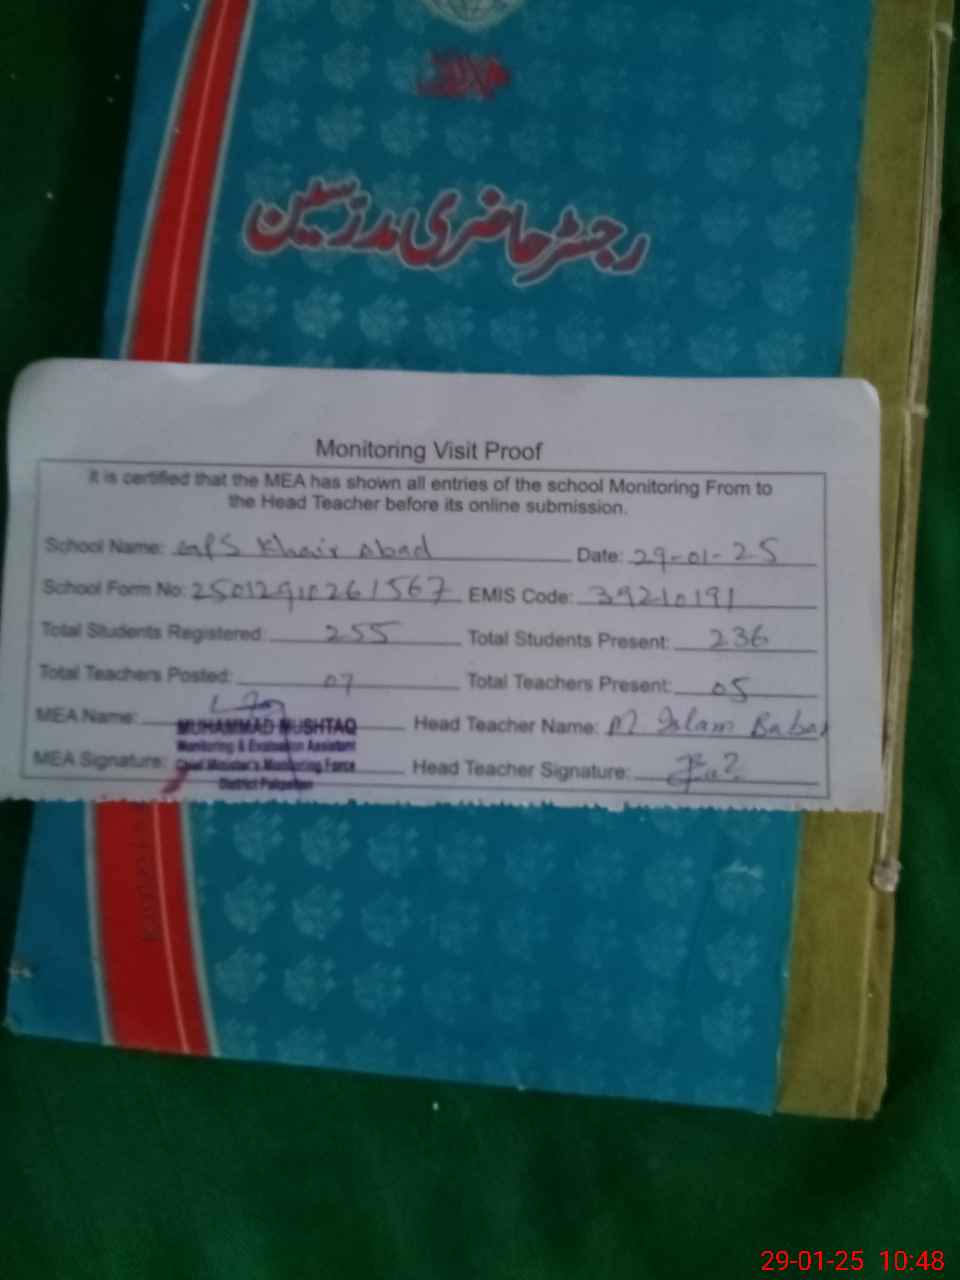 رجسٹر حاضری مدرسین
Monitoring Visit Proof
It is certified that the MEA has shown all entries of the school Monitoring From to
the Head Teacher before its online submission.
School Name: GMPS Khair Abad Date: 29-01-25
School Form No: 25012910261567 EMIS Code: 39210191
Total Students Registered: 255 Total Students Present: 236
Total Teachers Posted: 07 Total Teachers Present: 05
MEA Name: MUHAMMAD MUSHTAQ Head Teacher Name: M Islam Babar
Monitoring & Evaluation Assistant
MEA Signature: Chief Minister's Monitoring Force Head Teacher Signature:
District Pakpattan
29-01-25 10:48